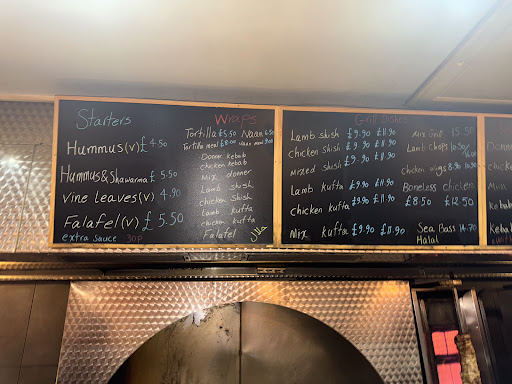 Starters
Hummus(v) £4.50
Hummus&Shawarma £ 5.50
Vine leaves(v) 4.90
Falafel(v) £ 5.50
extra sauce 30p
Wraps
Tortilla £5.50 Naan 6.50
Tortilla meal £8.00 Naan meal 9.00
Donner kebab
chicken kebab
Mix donner
Lamb shish
chicken shish
Lamb kufta
chicken kufta
Falafel
Grill Dishes
Lamb shish £9.90 £11.90
chicken shish £9.90 £11.90
mixed shish £9.90 £11.90
Lamb kufta £9.90 £11.90
Chicken kufta £9.90 £11.90
Mix kufta £9.90 £11.90
Mix Grill 15.50
Lamb chops 10.50/
chicken wings 8.90 10.90
Boneless chicken
£8.50 £12.50
Sea Bass 14.70
Halal
Donne
chicke
Mix
Kebab
Keba